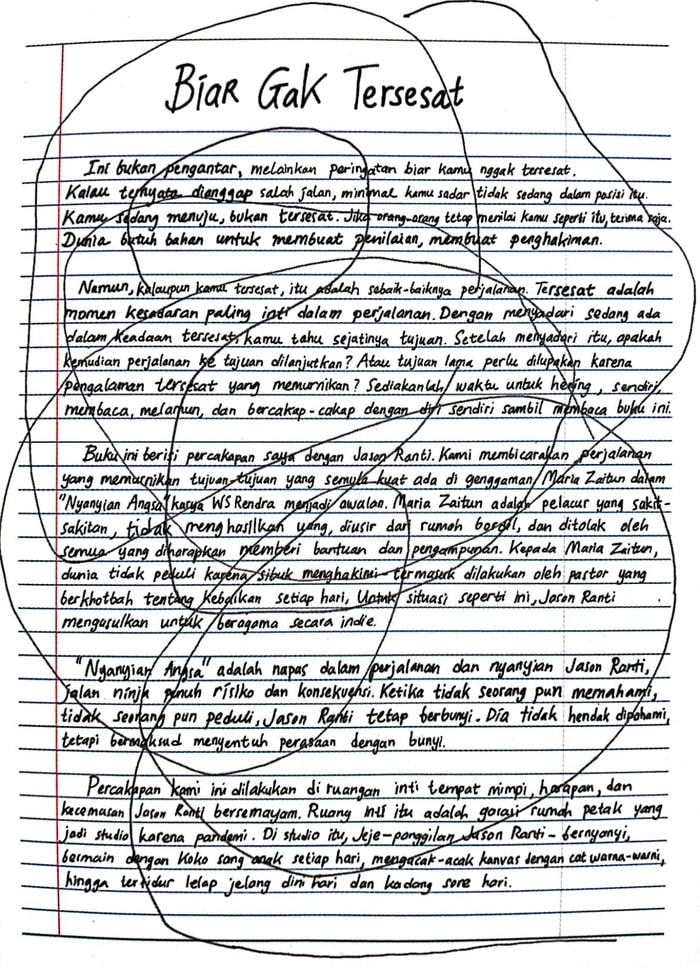 Biar Gak Tersesat
Ini bukan pengantar, melainkan peringatan biar kamu nggak tersesat.
Kalau ternyata dianggap salah jalan, minimal kamu sadar tidak sedang dalam posisi itu.
Kamu sedang menuju, bukan tersesat. Jika orang-orang tetap menilai kamu seperti itu, terima saja.
Dunia butuh bahan untuk membuat penilaian, membuat penghakiman.
Namun, kalaupun kamu tersesat, itu adalah sebaik-baiknya perjalanan. Tersesat adalah
momen kesadaran paling inti dalam perjalanan. Dengan menyadari sedang ada
dalam keadaan tersesat, kamu tahu sejatinya tujuan. Setelah menyadari itu, apakah
kemudian perjalanan ke tujuan dilanjutkan? Atau tujuan lama perlu dilupakan karena
pengalaman tersesat yang memurnikan? Sediakanlah waktu untuk hening, sendiri,
membaca, melamun, dan bercakap-cakap dengan diri sendiri sambil membaca buku ini.
Buku ini berisi percakapan saya dengan Jason Ranti. Kami membicarakan perjalanan
yang memurnikan tujuan-tujuan yang semula kuat ada di genggaman. Maria Zaitun dalam
"Nyanyian Angsa" karya WS Rendra menjadi awalan. Maria Zaitun adalah pelacur yang sakit-
sakitan, tidak menghasilkan uang, diusir dari rumah bordil, dan ditolak oleh
semua yang diharapkan memberi bantuan dan pengampunan. Kepada Maria Zaitun,
dunia tidak peduli karena sibuk menghakimi - termasuk dilakukan oleh pastor yang
berkhotbah tentang kebaikan setiap hari. Untuk situasi seperti ini, Jason Ranti
mengusulkan untuk beragama secara indie.
"Nyanyian Angsa" adalah napas dalam perjalanan dan nyanyian Jason Ranti,
jalan ninja penuh risiko dan konsekuensi. Ketika tidak seorang pun memahami,
tidak seorang pun peduli, Jason Ranti tetap berbunyi. Dia tidak hendak dipahami,
tetapi bermaksud menyentuh perasaan dengan bunyi.
Percakapan kami ini dilakukan di ruangan inti tempat mimpi, harapan, dan
kecemasan Jason Ranti bersemayam. Ruang inti itu adalah garasi rumah petak yang
jadi studio karena pandemi. Di studio itu, Jeje-panggilan Jason Ranti - bernyanyi,
bermain dengan Koko sang anak setiap hari, mengacak-acak kanvas dengan cat warna-warni,
hingga tertidur lelap jelang dini hari dan kadang sore hari.